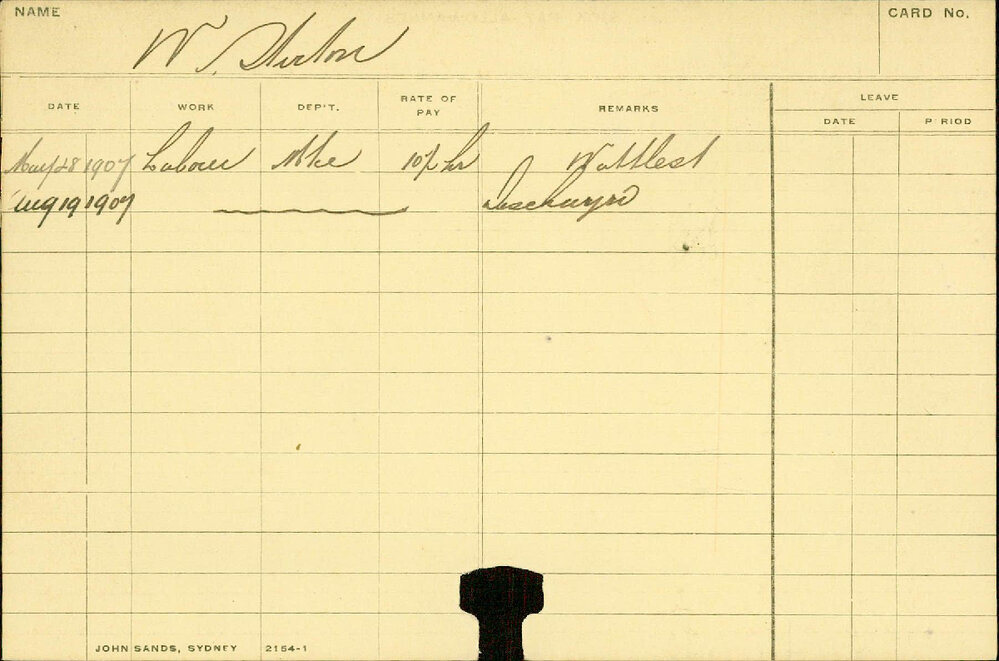 NAME
CARD No.
W. Stirton
DATE WORK DEP'T. RATE OF PAY REMARKS LEAVE
DATE P RIOD
May 28 1907 Labour Mke 10½ hr Wattlest
Aug 19 1907 Discharged
JOHN SANDS, SYDNEY 2154-1